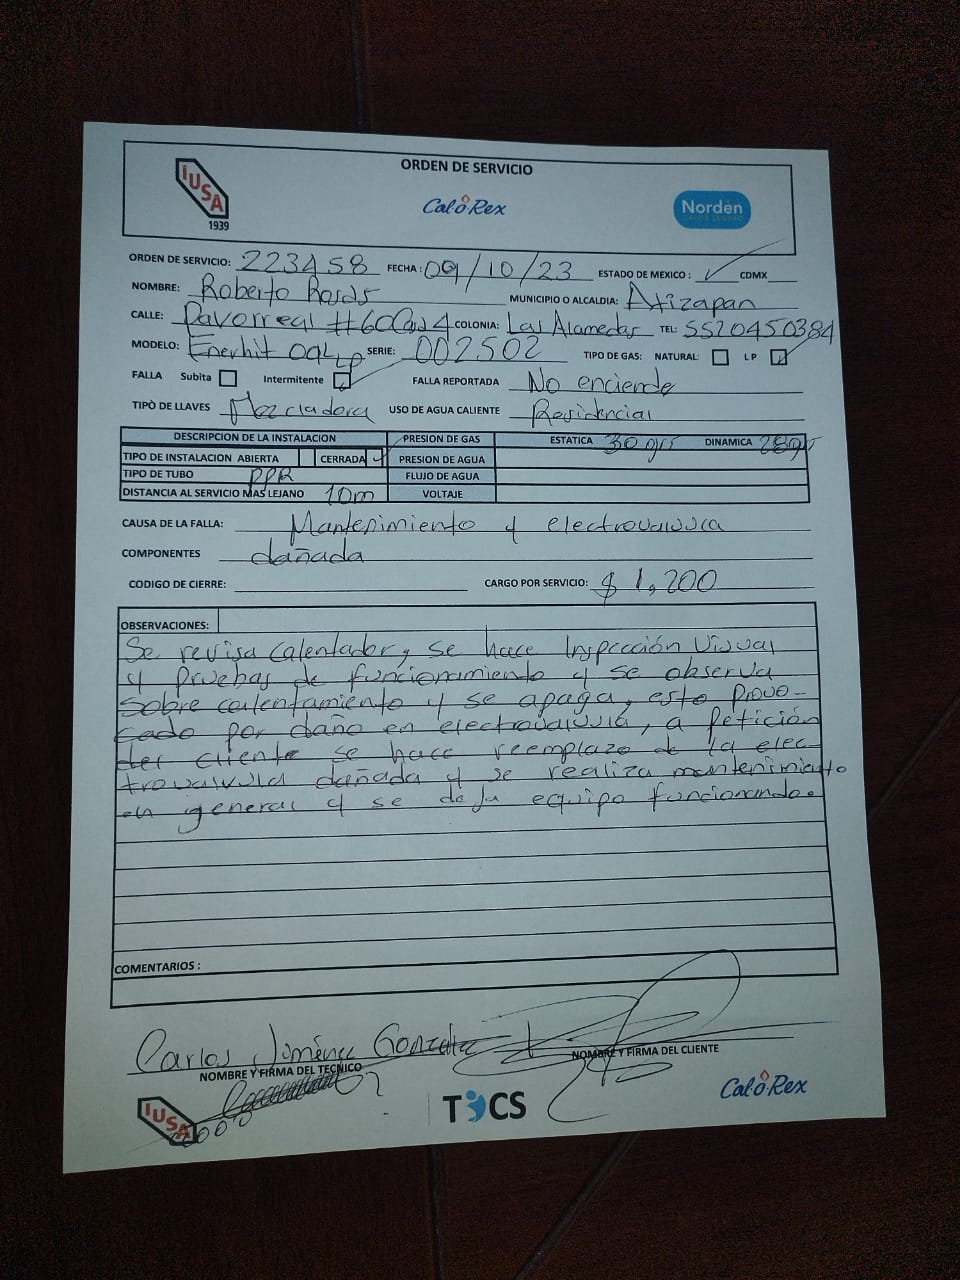 ORDEN DE SERVICIO
IUSA
1939
Cal-o-Rex
Nordën
ORDEN DE SERVICIO: 223458 FECHA: 09/10/23 ESTADO DE MEXICO: ✓ CDMX
NOMBRE: Roberto Rosas MUNICIPIO O ALCALDIA: Atizapan
CALLE: Pavorreal #60 COLONIA: Las Alamedas TEL: 5520450384
MODELO: Enerhit 09L LP SERIE: 002502 TIPO DE GAS: NATURAL: LP ✓
FALLA Subita Intermitente ✓ FALLA REPORTADA No enciende
TIPÒ DE LLAVES Mezcladora USO DE AGUA CALIENTE Residencial
DESCRIPCION DE LA INSTALACION PRESION DE GAS ESTATICA 30 grs DINAMICA 28grs
TIPO DE INSTALACION ABIERTA CERRADA ✓ PRESION DE AGUA
TIPO DE TUBO PPR FLUJO DE AGUA
DISTANCIA AL SERVICIO MAS LEJANO 10m VOLTAJE
CAUSA DE LA FALLA: Mantenimiento y electrovalvula
COMPONENTES dañada
CODIGO DE CIERRE: CARGO POR SERVICIO: $1,200
OBSERVACIONES:
Se revisa calentador, se hace Inspección Visual
y pruebas de funcionamiento y se observa
sobre calentamiento y se apaga, esto provo-
cado por daño en electrovalvula, a petición
del cliente se hace reemplazo de la elec-
trovalvula dañada y se realiza mantenimiento
en general y se deja equipo funcionando.
COMENTARIOS :
Carlos Jiménez González
NOMBRE Y FIRMA DEL TECNICO
NOMBRE Y FIRMA DEL CLIENTE
IUSA
TOCS
Cal-o-Rex